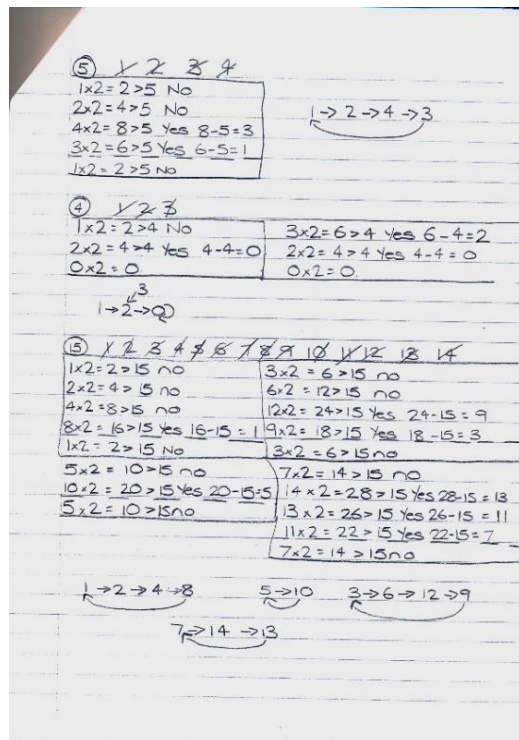 5 1 2 3 4
1x2 = 2 > 5 No
2x2 = 4 > 5 No
4x2 = 8 > 5 Yes 8-5=3
3x2 = 6 > 5 Yes 6-5=1
1x2 = 2 > 5 No
1 → 2 → 4 → 3
4 1 2 3
1x2 = 2 > 4 No
2x2 = 4 > 4 Yes 4-4=0
0x2 = 0
3x2 = 6 > 4 Yes 6-4=2
2x2 = 4 > 4 Yes 4-4 = 0
0x2 = 0.
3
1 → 2 → 0
15 1 2 3 4 5 6 7 8 9 10 11 12 13 14
1x2 = 2 > 15 no
2x2 = 4 > 15 no
4x2 = 8 > 15 no
8x2 = 16 > 15 Yes 16-15 = 1
1x2 = 2 > 15 No
3x2 = 6 > 15 no
6x2 = 12 > 15 no
12x2 = 24 > 15 Yes 24-15 = 9
9x2 = 18 > 15 Yes 18-15 = 3
3x2 = 6 > 15 no
5x2 = 10 > 15 no
10x2 = 20 > 15 Yes 20-15=5
5x2 = 10 > 15 no
7x2 = 14 > 15 no
14x2 = 28 > 15 Yes 28-15 = 13
13x2 = 26 > 15 Yes 26-15 = 11
11x2 = 22 > 15 Yes 22-15=7
7x2 = 14 > 15 no
1 → 2 → 4 → 8
5 → 10
3 → 6 → 12 → 9
7 → 14 → 13